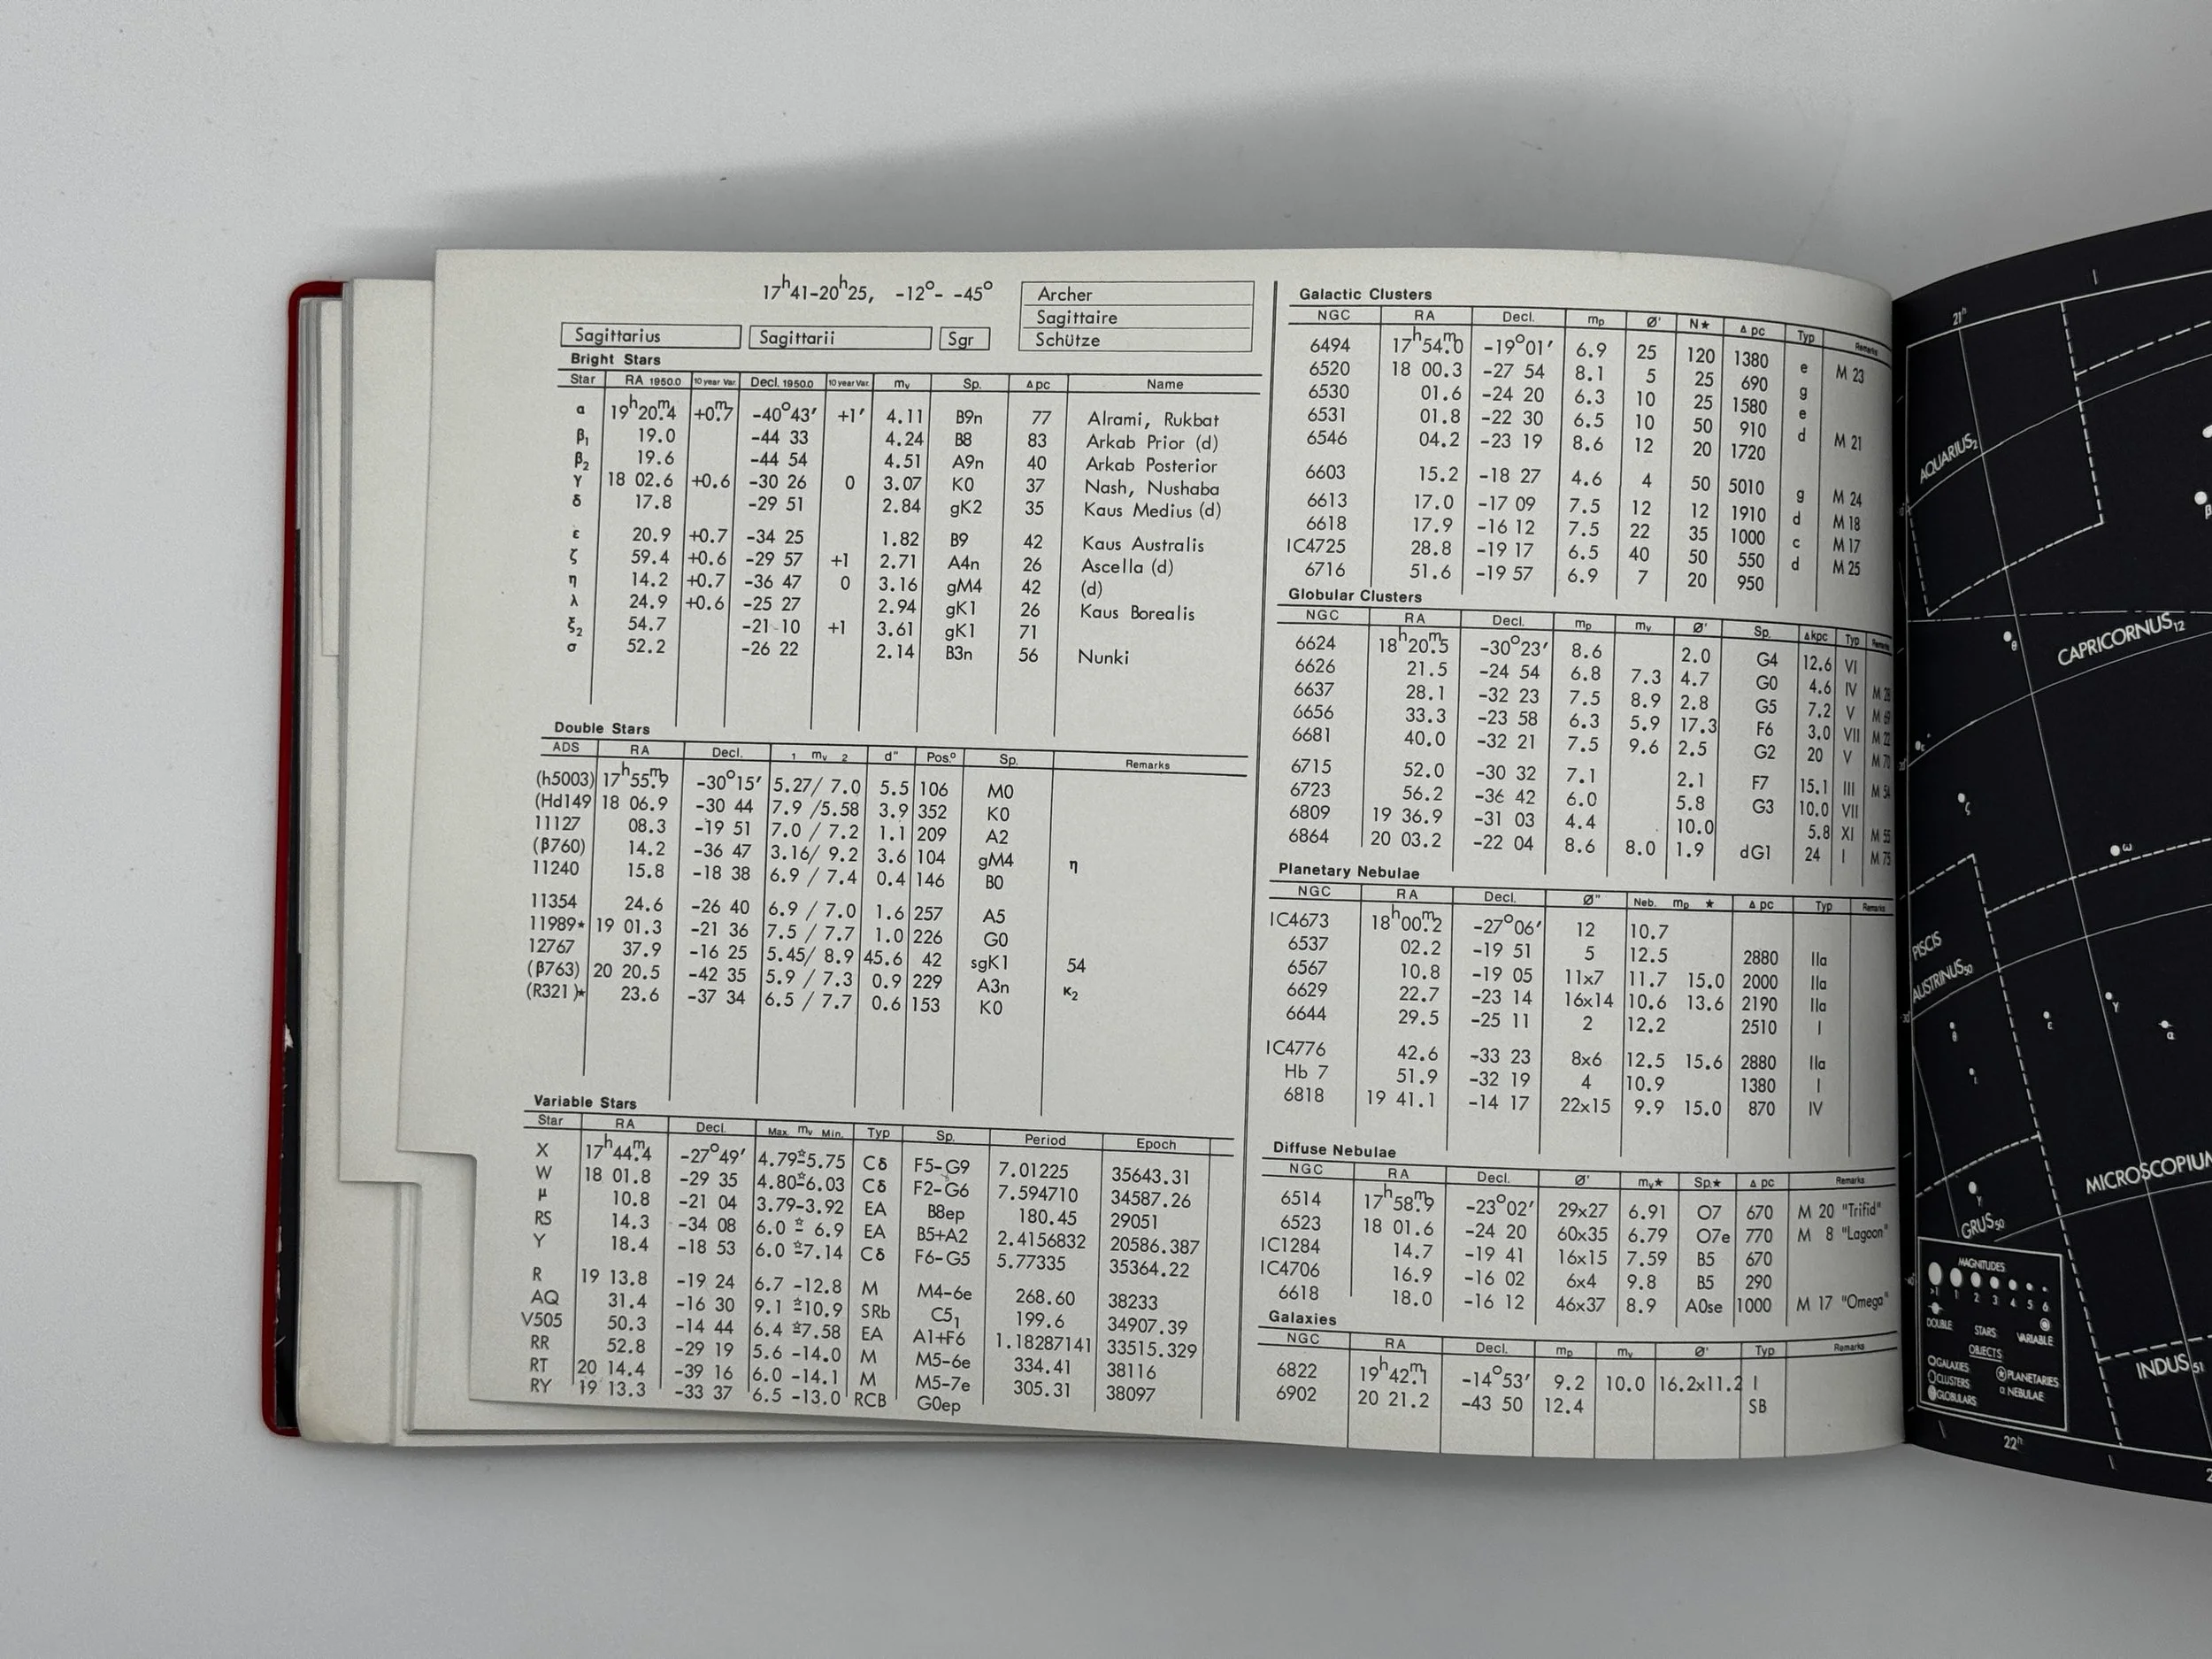 17h41-20h25, -12°- -45°
Archer
Sagittaire
Schütze
Sagittarius Sagittarii Sgr
Bright Stars
Star RA 1950.0 10 year Var. Decl. 1950.0 10 year Var. mv Sp. Δpc Name
α 19h20m.4 +0m.7 -40°43' +1' 4.11 B9n 77 Alrami, Rukbat
β1 19.0 -44 33 4.24 B8 83 Arkab Prior (d)
β2 19.6 -44 54 4.51 A9n 40 Arkab Posterior
γ 18 02.6 +0.6 -30 26 0 3.07 K0 37 Nash, Nushaba
δ 17.8 -29 51 2.84 gK2 35 Kaus Medius (d)
ε 20.9 +0.7 -34 25 1.82 B9 42 Kaus Australis
ζ 59.4 +0.6 -29 57 +1 2.71 A4n 26 Ascella (d)
η 14.2 +0.7 -36 47 0 3.16 gM4 42 (d)
λ 24.9 +0.6 -25 27 2.94 gK1 26 Kaus Borealis
ξ2 54.7 -21 10 +1 3.61 gK1 71
σ 52.2 -26 22 2.14 B3n 56 Nunki
Double Stars
ADS RA Decl. 1 mv 2 d" Pos.° Sp. Remarks
(h5003) 17h55m.9 -30°15' 5.27/ 7.0 5.5 106 M0
(Hd149 18 06.9 -30 44 7.9 /5.58 3.9 352 K0
11127 08.3 -19 51 7.0 / 7.2 1.1 209 A2
(β760) 14.2 -36 47 3.16/ 9.2 3.6 104 gM4 η
11240 15.8 -18 38 6.9 / 7.4 0.4 146 B0
11354 24.6 -26 40 6.9 / 7.0 1.6 257 A5
11989* 19 01.3 -21 36 7.5 / 7.7 1.0 226 G0
12767 37.9 -16 25 5.45/ 8.9 45.6 42 sgK1 54
(β763) 20 20.5 -42 35 5.9 / 7.3 0.9 229 A3n κ2
(R321)* 23.6 -37 34 6.5 / 7.7 0.6 153 K0
Variable Stars
Star RA Decl. Max. mv Min. Typ Sp. Period Epoch
X 17h44m.4 -27°49' 4.79☆-5.75 Cδ F5-G9 7.01225 35643.31
W 18 01.8 -29 35 4.80☆-6.03 Cδ F2-G6 7.594710 34587.26
μ 10.8 -21 04 3.79-3.92 EA B8ep 180.45 29051
RS 14.3 -34 08 6.0 ☆- 6.9 EA B5+A2 2.4156832 20586.387
Y 18.4 -18 53 6.0 ☆-7.14 Cδ F6-G5 5.77335 35364.22
R 19 13.8 -19 24 6.7 -12.8 M M4-6e 268.60 38233
AQ 31.4 -16 30 9.1 ☆-10.9 SRb C51 199.6 34907.39
V505 50.3 -14 44 6.4 ☆-7.58 EA A1+F6 1.18287141 33515.329
RR 52.8 -29 19 5.6 -14.0 M M5-6e 334.41 38116
RT 20 14.4 -39 16 6.0 -14.1 M M5-7e 305.31 38097
RY 19 13.3 -33 37 6.5 -13.0 RCB G0ep
Galactic Clusters
NGC RA Decl. mp Ø' N★ Δ pc Typ Remarks
6494 17h54m.0 -19°01' 6.9 25 120 1380 e M 23
6520 18 00.3 -27 54 8.1 5 25 690 g
6530 01.6 -24 20 6.3 10 25 1580 e
6531 01.8 -22 30 6.5 10 50 910 d M 21
6546 04.2 -23 19 8.6 12 20 1720
6603 15.2 -18 27 4.6 4 50 5010 g M 24
6613 17.0 -17 09 7.5 12 12 1910 d M 18
6618 17.9 -16 12 7.5 22 35 1000 c M 17
IC4725 28.8 -19 17 6.5 40 50 550 d M 25
6716 51.6 -19 57 6.9 7 20 950
Globular Clusters
NGC RA Decl. mp mv Ø' Sp. Δkpc Typ Remarks
6624 18h20m.5 -30°23' 8.6 2.0 G4 12.6 VI
6626 21.5 -24 54 6.8 7.3 4.7 G0 4.6 IV M 28
6637 28.1 -32 23 7.5 8.9 2.8 G5 7.2 V M 69
6656 33.3 -23 58 6.3 5.9 17.3 F6 3.0 VII M 22
6681 40.0 -32 21 7.5 9.6 2.5 G2 20 V M 70
6715 52.0 -30 32 7.1 2.1 F7 15.1 III M 54
6723 56.2 -36 42 6.0 5.8 G3 10.0 VII
6809 19 36.9 -31 03 4.4 10.0 5.8 XI M 55
6864 20 03.2 -22 04 8.6 8.0 1.9 dG1 24 I M 75
Planetary Nebulae
NGC RA Decl. Ø" Neb. mp ★ Δ pc Typ Remarks
IC4673 18h00m.2 -27°06' 12 10.7
6537 02.2 -19 51 5 12.5 2880 IIa
6567 10.8 -19 05 11x7 11.7 15.0 2000 IIa
6629 22.7 -23 14 16x14 10.6 13.6 2190 IIa
6644 29.5 -25 11 2 12.2 2510 I
IC4776 42.6 -33 23 8x6 12.5 15.6 2880 IIa
Hb 7 51.9 -32 19 4 10.9 1380 I
6818 19 41.1 -14 17 22x15 9.9 15.0 870 IV
Diffuse Nebulae
NGC RA Decl. Ø' mv★ Sp★ Δ pc Remarks
6514 17h58m.9 -23°02' 29x27 6.91 O7 670 M 20 "Trifid"
6523 18 01.6 -24 20 60x35 6.79 O7e 770 M 8 "Lagoon"
IC1284 14.7 -19 41 16x15 7.59 B5 670
IC4706 16.9 -16 02 6x4 9.8 B5 290
6618 18.0 -16 12 46x37 8.9 A0se 1000 M 17 "Omega"
Galaxies
NGC RA Decl. mp mv Ø' Typ Remarks
6822 19h42m.1 -14°53' 9.2 10.0 16.2x11.2 I
6902 20 21.2 -43 50 12.4 SB
21h
AQUARIUS2
CAPRICORNUS12
θ
ζ
ω
PISCIS
AUSTRINUS50
γ
ε
α
θ
ι
γ
MICROSCOPIUM
GRUS50
INDUS51
22h
MAGNITUDES
>1 1 2 3 4 5 6
DOUBLE STARS VARIABLE
OBJECTS
GALAXIES PLANETARIES
CLUSTERS NEBULAE
GLOBULARS